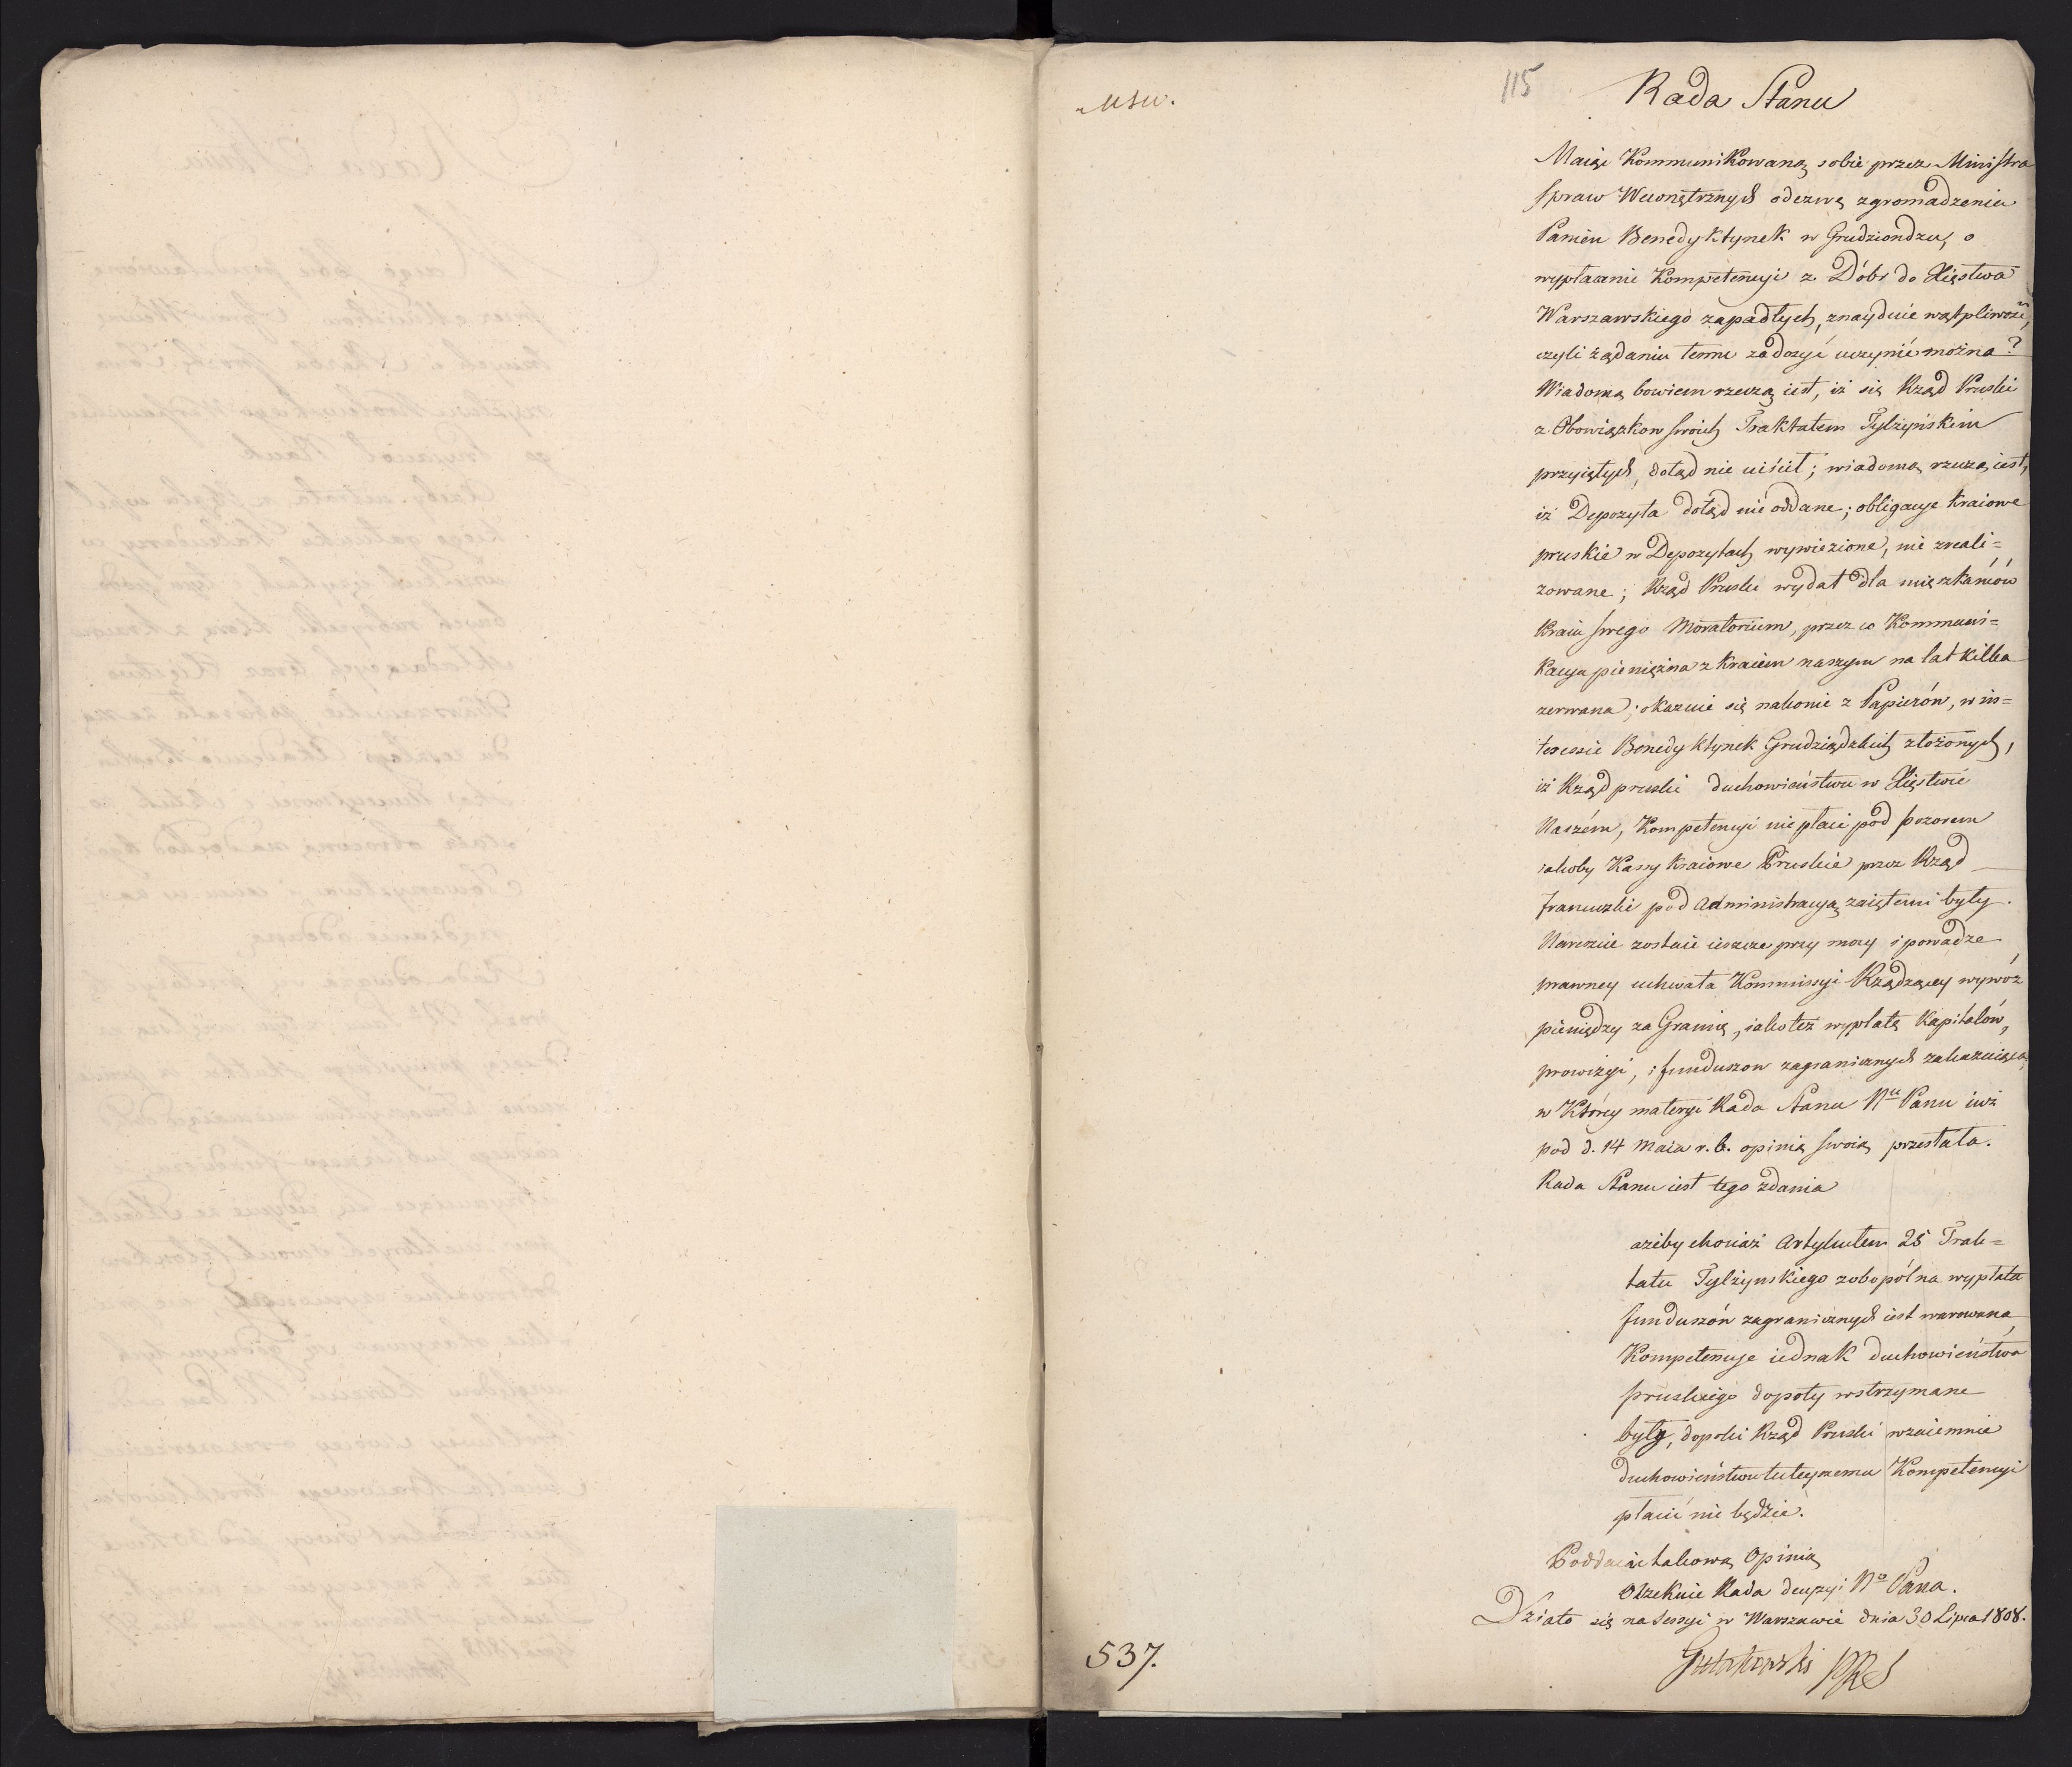 MSW.
115
Rada Stanu
Maiąc Kommunikowaną sobie przez Ministra
Spraw Wewnętrznych odezwę zgromadzenia
Panien Benedyktynek w Grudziondzu, o
wypłacenie Kompetencyi z Dóbr do Xięstwa
Warszawskiego zapadłych, znayduie wątpliwość,
czyli żądaniu temu zadosyć uczynić można?
Wiadomą bowiem rzeczą iest, iż się Rząd Pruski
z Obowiązkow swoich Traktatem Tylżyńskim
przyiętych, dotąd nie uiścił; wiadomą rzeczą iest,
iż Depozyta dotąd nie oddane; obligacye kraiowe
pruskie w Depozytach wywiezione, nie zreali=
zowane; Rząd Pruski wydał dla mięszkańców
kraiu swego Moratorium, przez co Kommuni=
kacya pieniężna z kraiem naszym na lat kilka
zerwana; okazuie się nakonie z Papierów, w in=
teressie Benedyktynek Grudziądzkich złożonych,
iż Rząd pruski duchowieństwu w Xięstwie
Naszém, Kompetencyi nie płaci pod pozorem
iakoby Kassy kraiowe Pruskie przez Rząd
francuzki pod administracyą zaiętemi były.
Nareszcie zostaie ieszcze przy mocy i powadze
prawney uchwała Kommissyi Rządzącey wywóz
pieniędzy za Granicę, iako też wypłatę kapitałów,
prowizyi, i funduszow zagranicznych zakazuiąca,
w którey materyi Rada Stanu Nu Panu iuż
pod d. 14 Maia r. b. opinią swoią przesłała.
Rada Stanu iest tego zdania
ażeby chociaż Artykułem 25 Trak=
tatu Tylżynskiego zobopólna wypłata
funduszón zagranicznych iest warowana,
Kompetencye iednak duchowieństwa
pruskiego dopoty wstrzymane
były, dopoki Rząd Pruski wzaiemnie
duchowieństwu tuteyszemu Kompetencyi
płacić nie będzie.
Poddaiąc takową Opinią
Oczekuie Rada decyzyi No Pana.
Działo się na Sessyi w Warszawie dnia 30 Lipca 1808.
Gutakowski PRS
537.